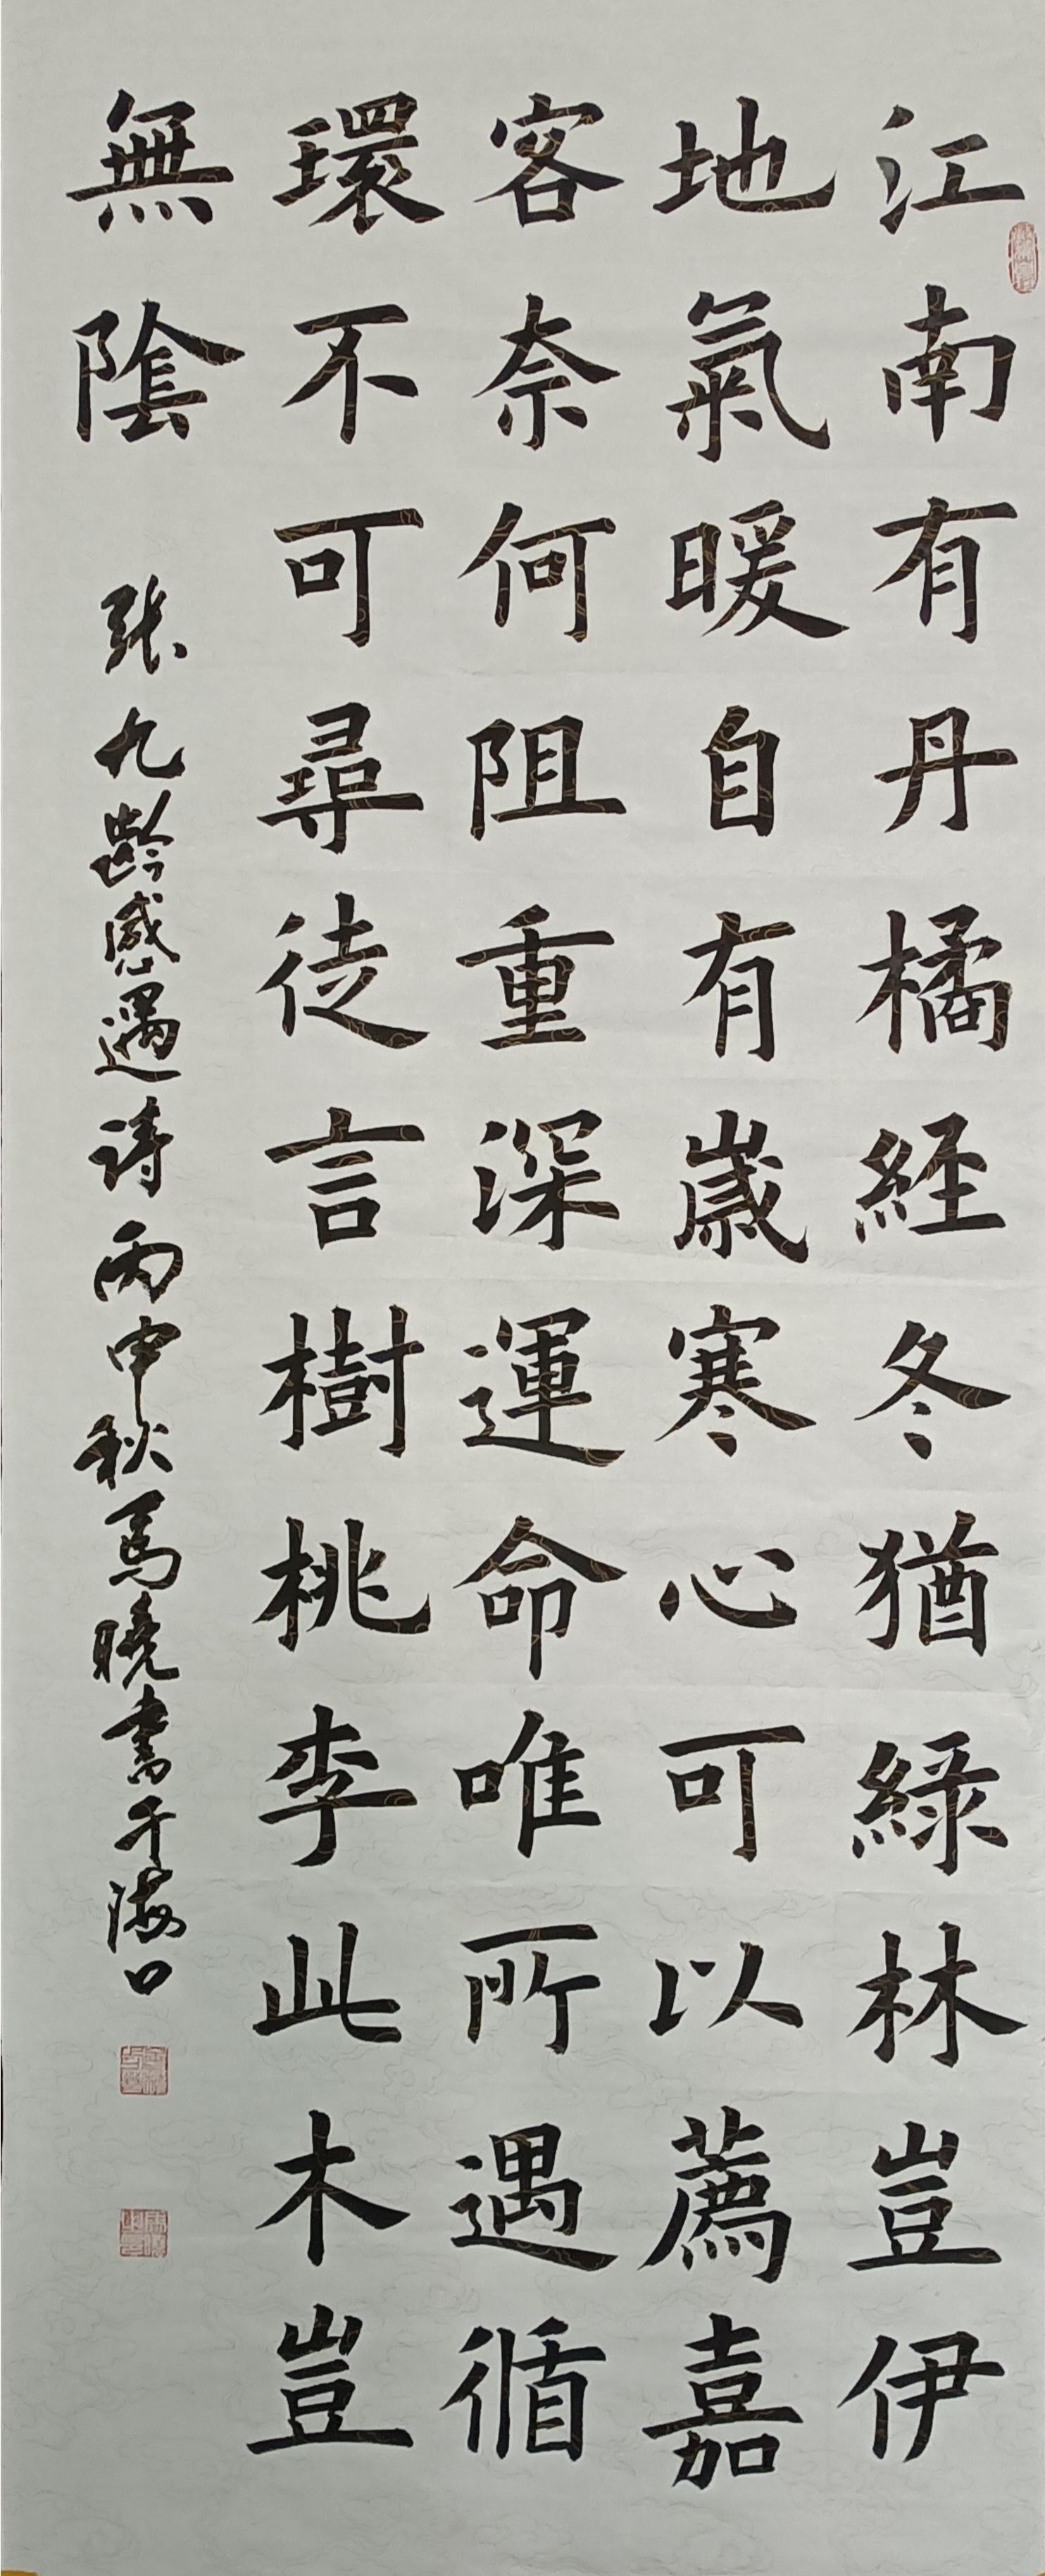 江南有丹橘経冬猶緑林豈伊
地氣暖自有歲寒心可以薦嘉
客奈何阻重深運命唯所遇循
環不可尋徒言樹桃李此木豈
無陰
張九齡感遇詩丙申秋馬曉書于海口